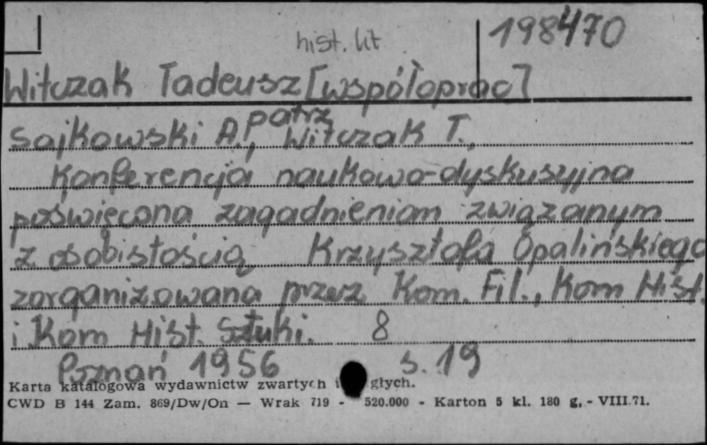 hist. lit
198470
Witczak Tadeusz [współoprac]
patrz
Sajkowski A., Witczak T.,
Konferencja naukowo-dyskusyjna
poświęcona zagadnieniom związanym
z osobistością Krzysztofa Opalińskiego
zorganizowana przez Kom. Fil., Kom Hist.
i Kom Hist. Sztuki. 8
Poznań 1956 s. 19
Karta katalogowa wydawnictw zwartych i głych.
CWD B 144 Zam. 869/Dw/On — Wrak 719 - 520.000 - Karton 5 kl. 180 g. - VIII.71.